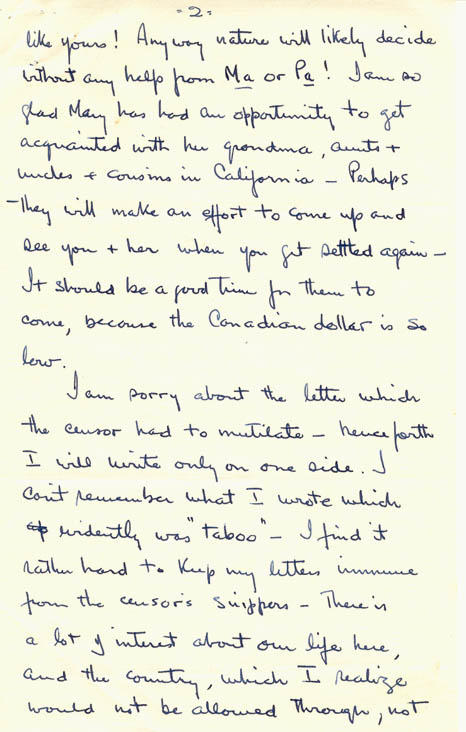 - 2 -
like yours! Anyway nature will likely decide
without any help from Ma or Pa! I am so
glad Mary has had an opportunity to get
acquainted with her grandma, aunts +
uncles + cousins in California - Perhaps
They will make an effort to come up and
see you + her when you get settled again -
It should be a good time for them to
come, because the Canadian dollar is so
low.
I am sorry about the letter which
the censor had to mutilate - henceforth
I will write only on one side. I
can't remember what I wrote which
evidently was "taboo" - I find it
rather hard to keep my letters immune
from the censor's snippers - There is
a lot of interest about our life here,
and the country, which I realize
would not be allowed through, not